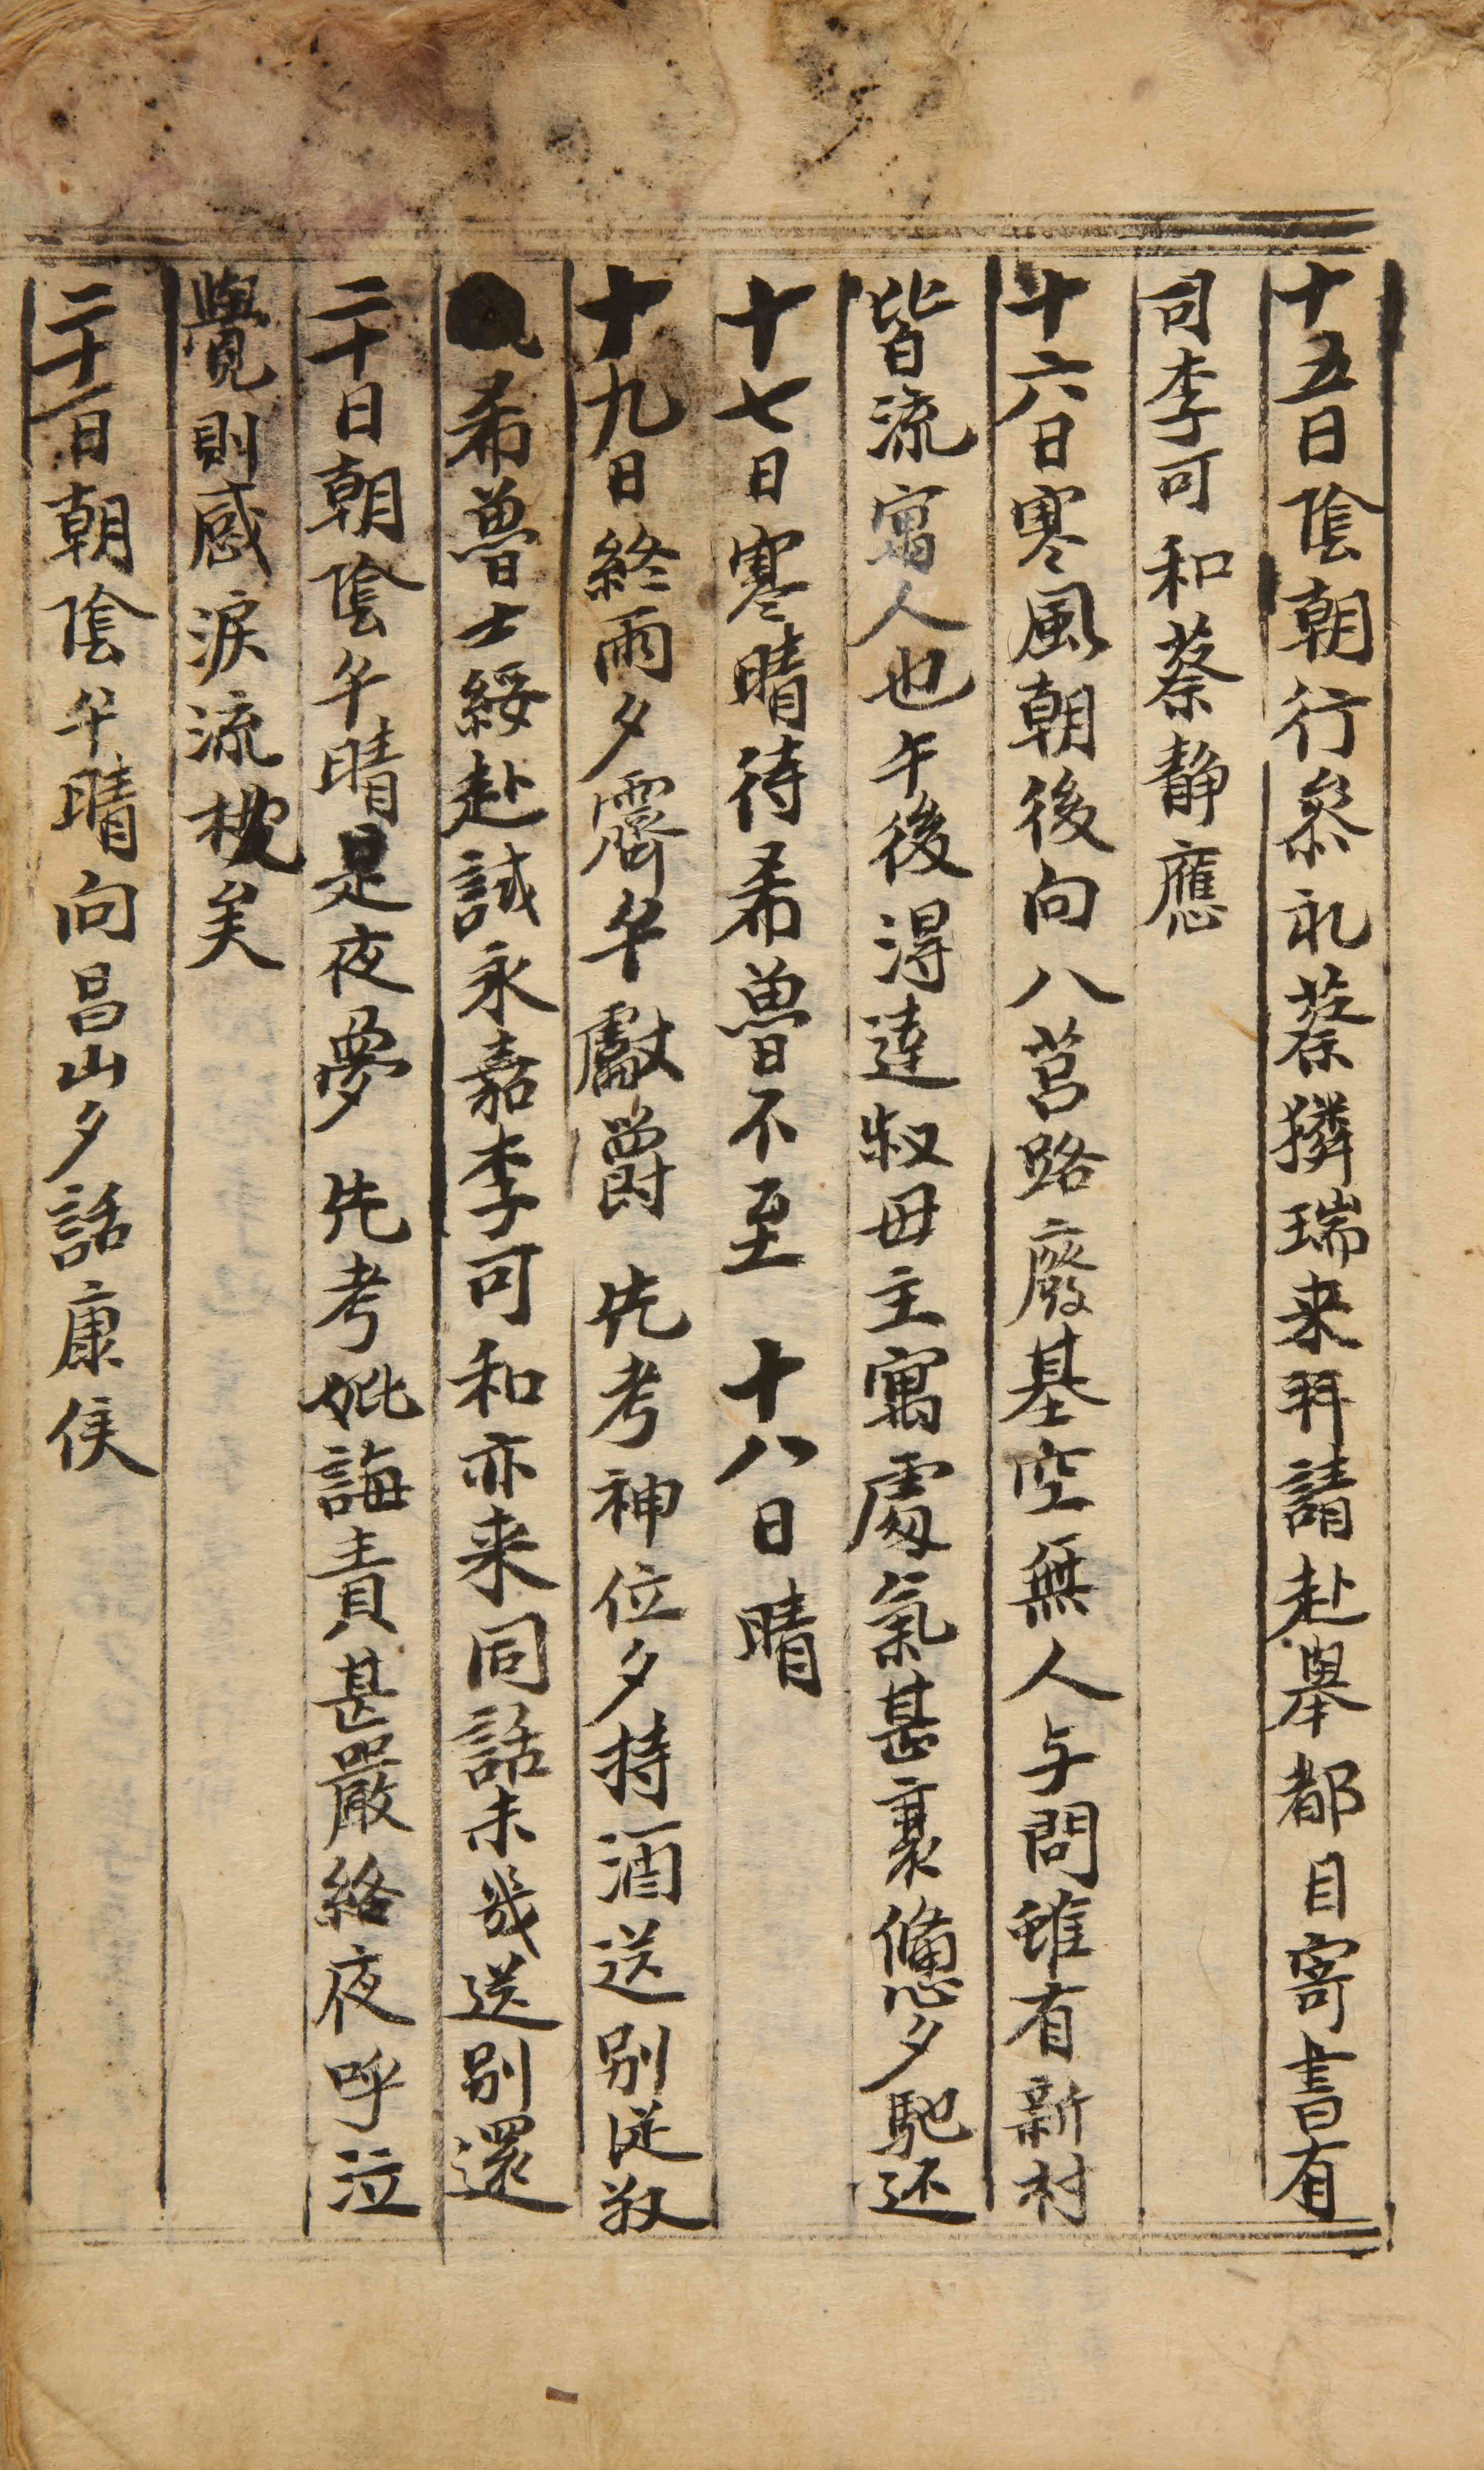 十五日陰朝行參礼蔡獜瑞来拜請赴擧都目寄書有
司李可和蔡靜應
十六日寒風朝後向八莒路廢基空無人与問雖有新村
皆流寓人也午後淂達叔母主寓處氣甚裏憊夕馳还
十七日寒晴待希魯不至 十八日晴
十九日終雨夕霽午獻爵 先考神位夕持酒送別従叔
希魯士綏赴試永嘉李可和亦来同話未幾送別還
二十日朝陰午晴是夜夢 先考妣誨責甚嚴終夜呼泣
覺則感淚流枕矣
二十一日朝陰午晴向昌山夕話康侯